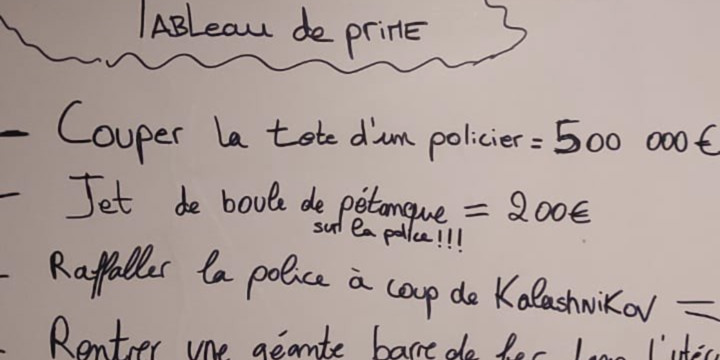 TABLeau de priME
- Couper la tete d'un policier = 500 000 €
- Jet de boule de pétanque = 200€
sur la police !!!
- Raffaller la police à coup de KalashniKov =
- Rentrer une géante barre de fer dans l'